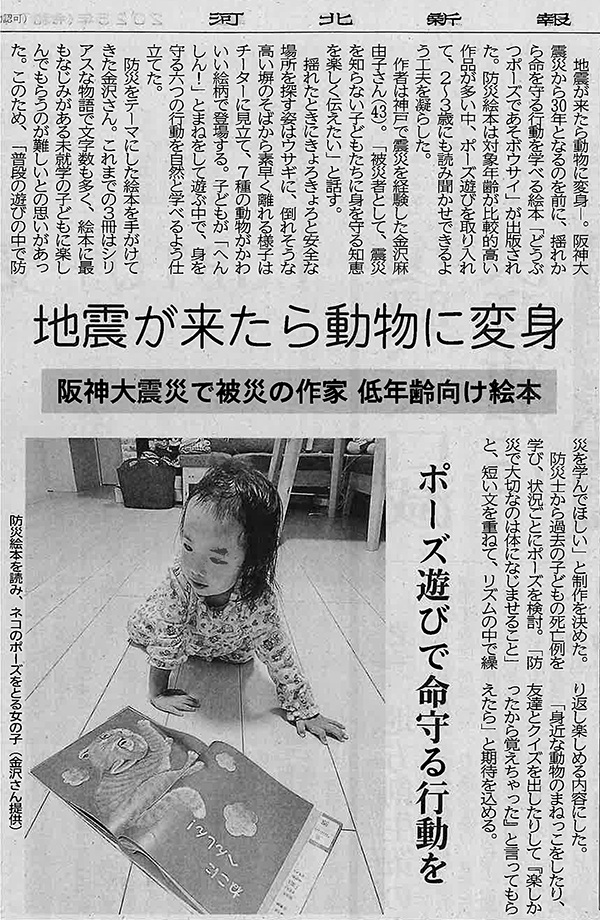 河北新報
地震が来たら動物に変身―。阪神大
震災から30年となるのを前に、揺れか
ら命を守る行動を学べる絵本「どうぶ
つポーズであそボウサイ」が出版され
た。防災絵本は対象年齢が比較的高い
作品が多い中、ポーズ遊びを取り入れ
て、2〜3歳にも読み聞かせできるよ
う工夫を凝らした。
作者は神戸で震災を経験した金沢麻
由子さん(43)。「被災者として、震災
を知らない子どもたちに身を守る知恵
を楽しく伝えたい」と話す。
揺れたときにきょろきょろと安全な
場所を探す姿はウサギに、倒れそうな
高い塀のそばから素早く離れる様子は
チーターに見立て、7種の動物がかわ
いい絵柄で登場する。子どもが「へん
しん!」とまねをして遊ぶ中で、身を
守る六つの行動を自然と学べるよう仕
立てた。
防災をテーマにした絵本を手がけて
きた金沢さん。これまでの3冊はシリ
アスな物語で文字数も多く、絵本に最
もなじみがある未就学の子どもに楽し
んでもらうのが難しいとの思いがあっ
た。このため、「普段の遊びの中で防
地震が来たら動物に変身
阪神大震災で被災の作家 低年齢向け絵本
ポーズ遊びで命守る行動を
災を学んでほしい」と制作を決めた。
防災士から過去の子どもの死亡例を
学び、状況ごとにポーズを検討。「防
災で大切なのは体になじませること」
と、短い文を重ねて、リズムの中で繰
り返し楽しめる内容にした。
「身近な動物のまねっこをしたり、
友達とクイズを出したりして『楽しか
ったから覚えちゃった』と言ってもら
えたら」と期待を込める。
防災絵本を読み、ネコのポーズをとる女の子(金沢さん提供)
ねこに
へんしん!